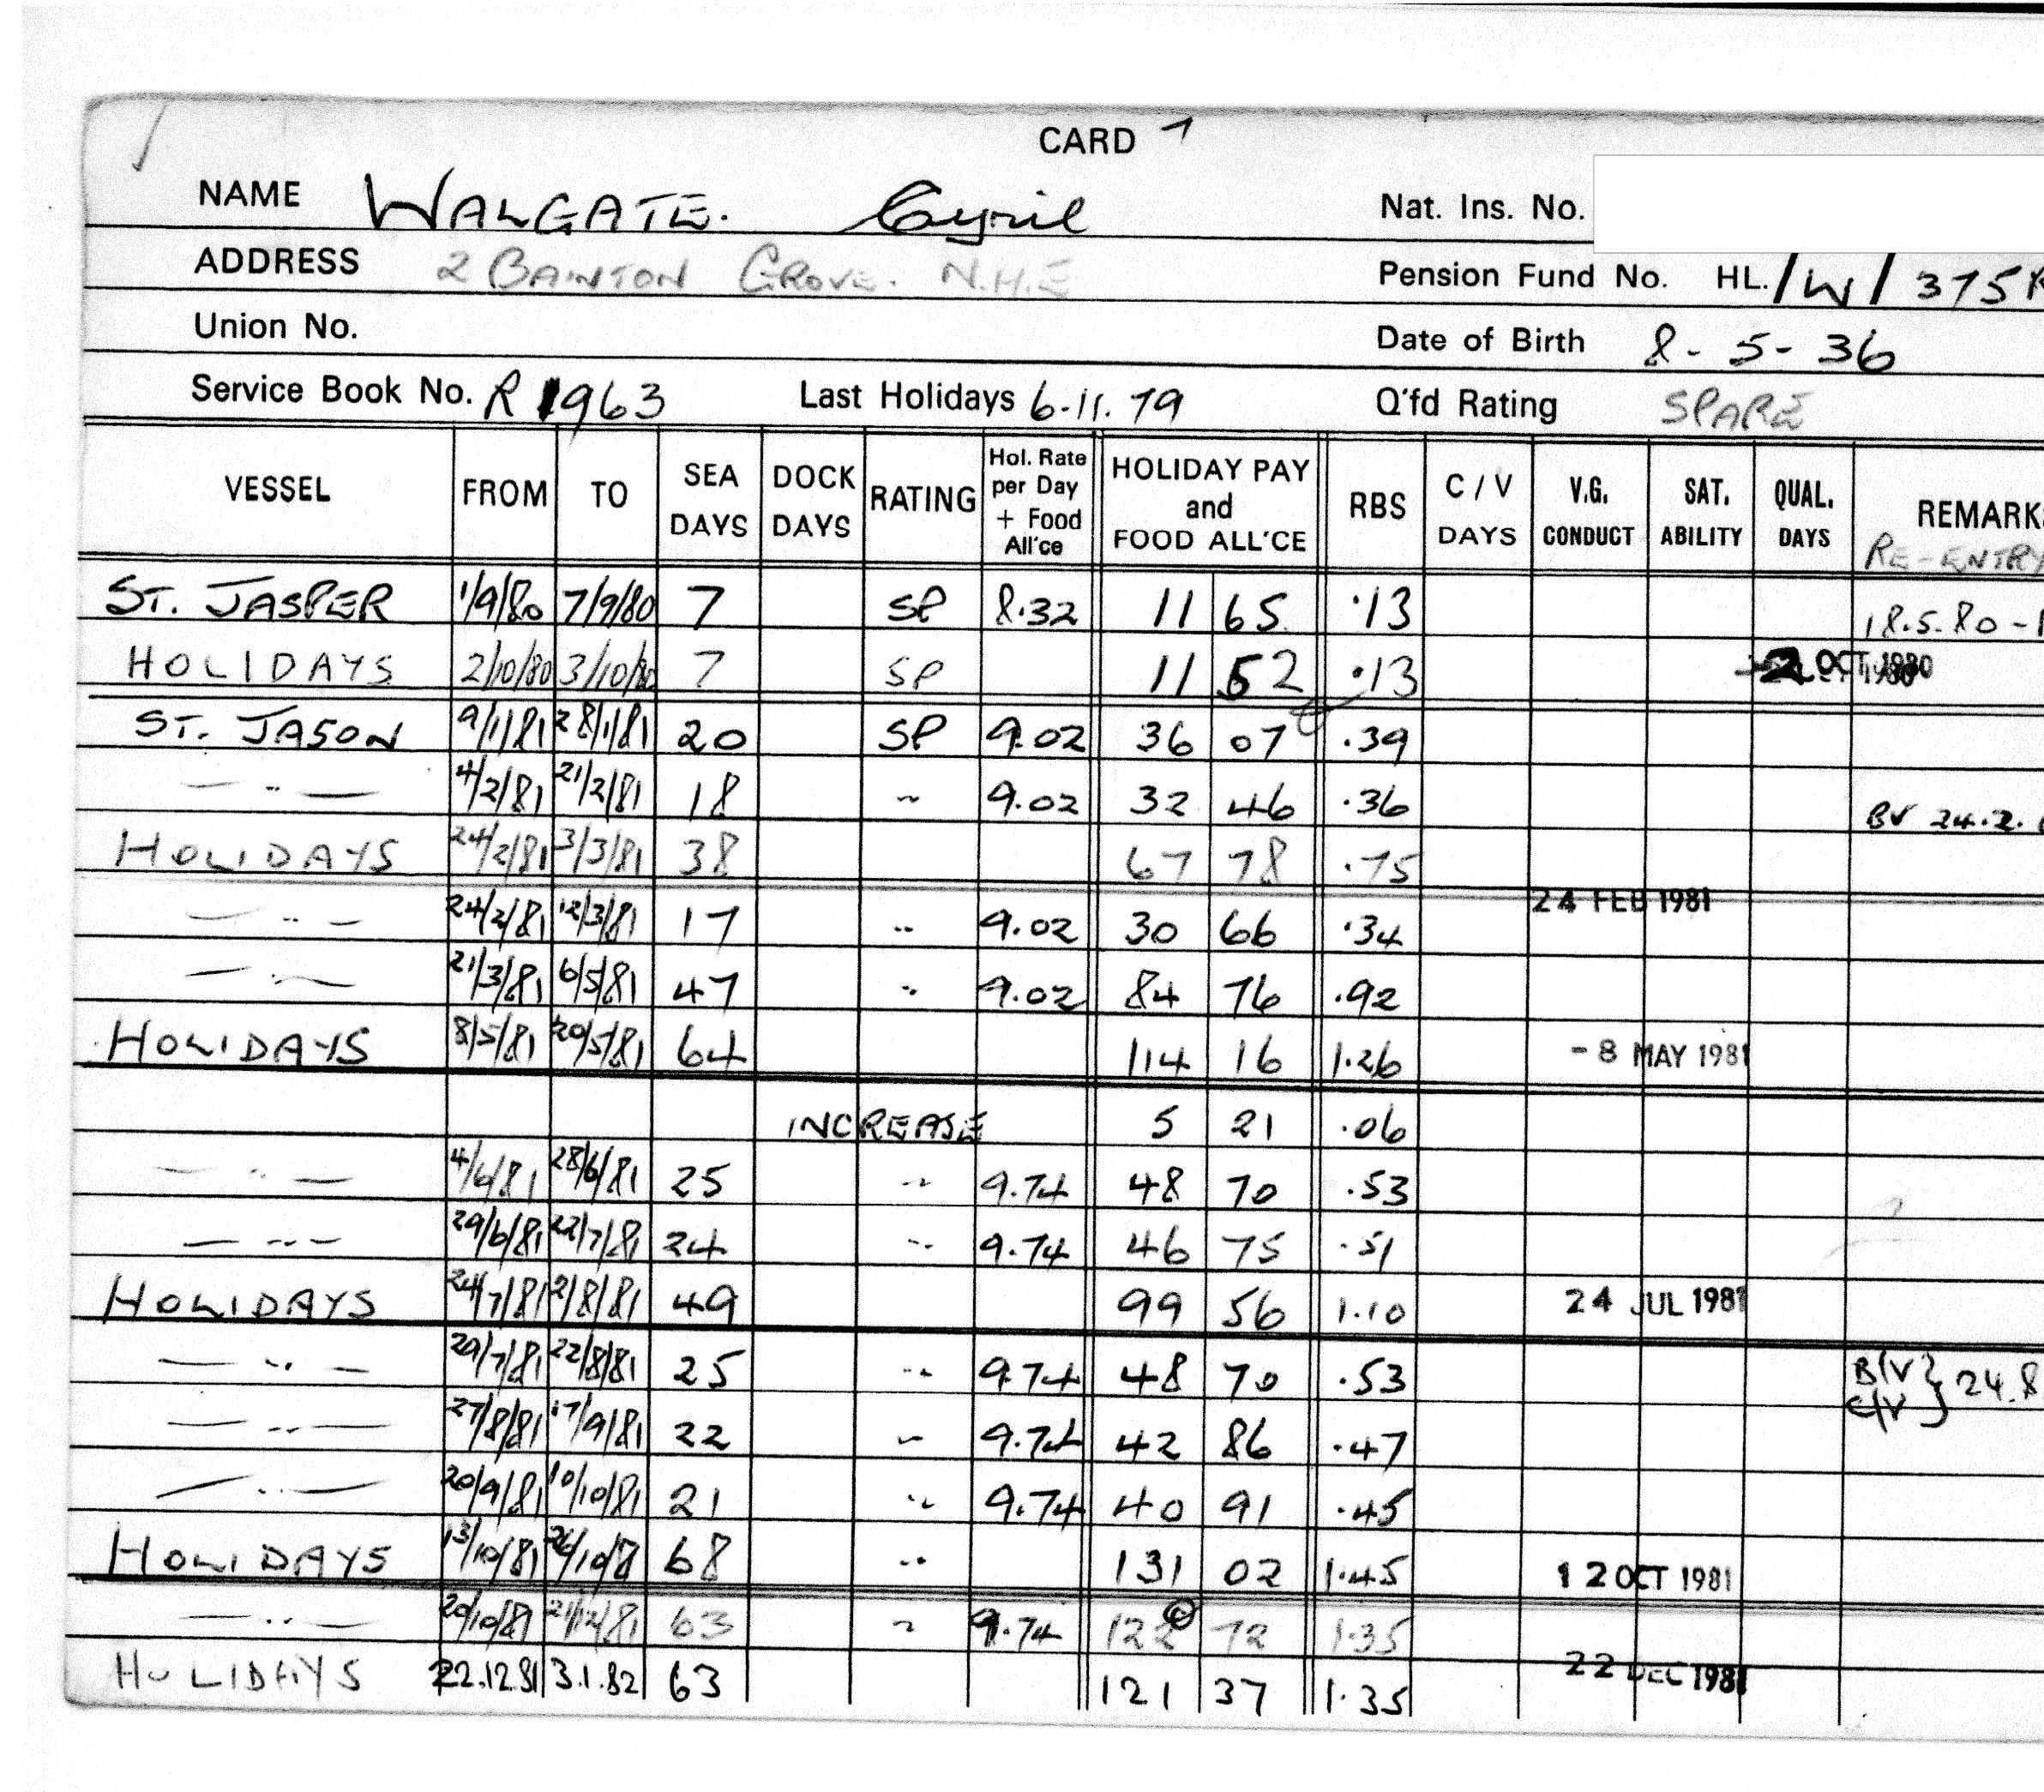 CARD 1
NAME WALGATE. Cyril Nat. Ins. No.
ADDRESS 2 BAINTON GROVE. N.H.E Pension Fund No. HL./W/375
Union No. Date of Birth 8-5-36
Service Book No. R 1963 Last Holidays 6.11.79 Q'fd Rating SPARE
VESSEL FROM TO SEA DAYS DOCK DAYS RATING Hol. Rate per Day + Food All'ce HOLIDAY PAY and FOOD ALL'CE RBS C/V DAYS V.G. CONDUCT SAT. ABILITY QUAL. DAYS REMARKS
RE-ENTRY
ST. JASPER 1/9/80 7/9/80 7 SP 8.32 11 65 .13 18.5.80 -
HOLIDAYS 2/10/80 3/10/80 7 SP 11 52 .13 -2 OCT 1980
ST. JASON 9/1/81 28/1/81 20 SP 9.02 36 07 .39
— " — 4/2/81 21/2/81 18 " 9.02 32 46 .36 BV 24.2.
HOLIDAYS 24/2/81 3/3/81 38 67 78 .75
24 FEB 1981
— " — 24/2/81 12/3/81 17 " 9.02 30 66 .34
— " — 21/3/81 6/5/81 47 " 9.02 84 76 .92
HOLIDAYS 8/5/81 20/5/81 64 114 16 1.26 -8 MAY 1981
INCREASE 5 21 .06
— " — 4/6/81 28/6/81 25 " 9.74 48 70 .53
— " — 29/6/81 22/7/81 24 " 9.74 46 75 .51
HOLIDAYS 24/7/81 2/8/81 49 99 56 1.10 24 JUL 1981
— " — 29/7/81 22/8/81 25 " 9.74 48 70 .53 B/V } 24.8
C/V }
— " — 27/8/81 17/9/81 22 " 9.74 42 86 .47
— " — 20/9/81 10/10/81 21 " 9.74 40 91 .45
HOLIDAYS 13/10/81 26/10/81 68 " 131 02 1.45 12 OCT 1981
— " — 20/10/81 21/12/81 63 " 9.74 122 72 1.35
HOLIDAYS 22.12.81 3.1.82 63 121 37 1.35 22 DEC 1981